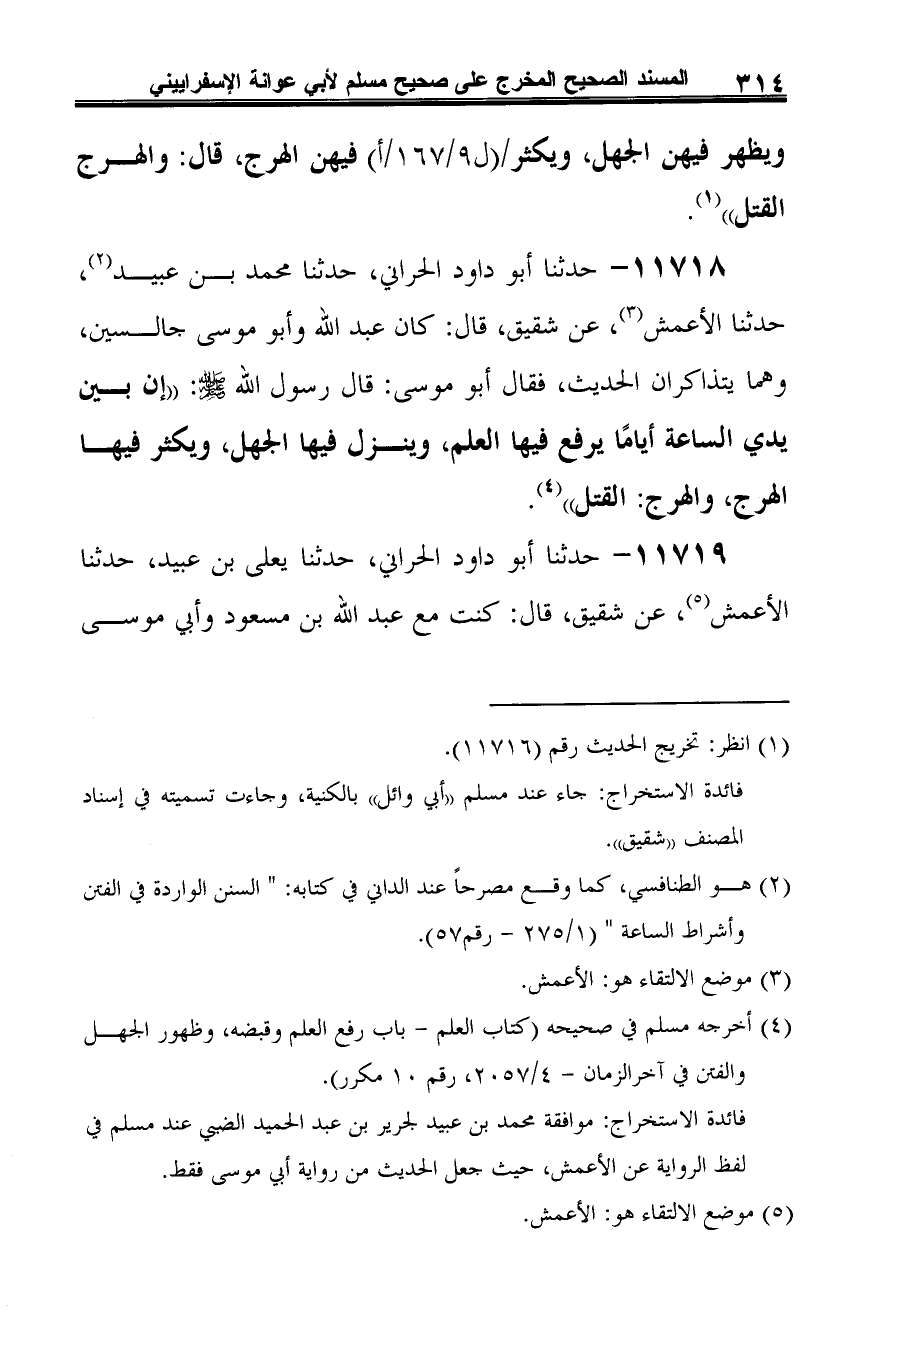 ٣١٤ المسند الصحيح المخرج على صحيح مسلم لأبي عوانة الإسفراييني
ويظهر فيهن الجهل، ويكثر/(ل٩/١٦٧/أ) فيهن الهرج، قال: والهـرج
القتل»(١).
١١٧١٨- حدثنا أبو داود الحراني، حدثنا محمد بـن عبيـد(٢)،
حدثنا الأعمش(٣)، عن شقيق، قال: كان عبد الله وأبو موسى جالـسين،
وهما يتذاكران الحديث، فقال أبو موسى: قال رسول الله ﷺ: «إن بـين
يدي الساعة أيامًا يرفع فيها العلم، وينـزل فيها الجهل، ويكثر فيهـا
الهرج، والهرج: القتل»(٤).
١١٧١٩- حدثنا أبو داود الحراني، حدثنا يعلى بن عبيد، حدثنا
الأعمش(٥)، عن شقيق، قال: كنت مع عبد الله بن مسعود وأبي موسـى
(١) انظر: تخريج الحديث رقم (١١٧١٦).
فائدة الاستخراج: جاء عند مسلم «أبي وائل» بالكنية، وجاءت تسميته في إسناد
المصنف «شقيق».
(٢) هـو الطنافسي، كما وقـع مصرحاً عند الداني في كتابه: " السنن الواردة في الفتن
وأشراط الساعة " (٢٧٥/١ - رقم٥٧).
(٣) موضع الالتقاء هو: الأعمش.
(٤) أخرجه مسلم في صحيحه (كتاب العلم - باب رفع العلم وقبضه، وظهور الجهـل
والفتن في آخرالزمان - ٢٠٥٧/٤، رقم ١٠ مكرر).
فائدة الاستخراج: موافقة محمد بن عبيد لجرير بن عبد الحميد الضبي عند مسلم في
لفظ الرواية عن الأعمش، حيث جعل الحديث من رواية أبي موسى فقط.
(٥) موضع الالتقاء هو: الأعمش.